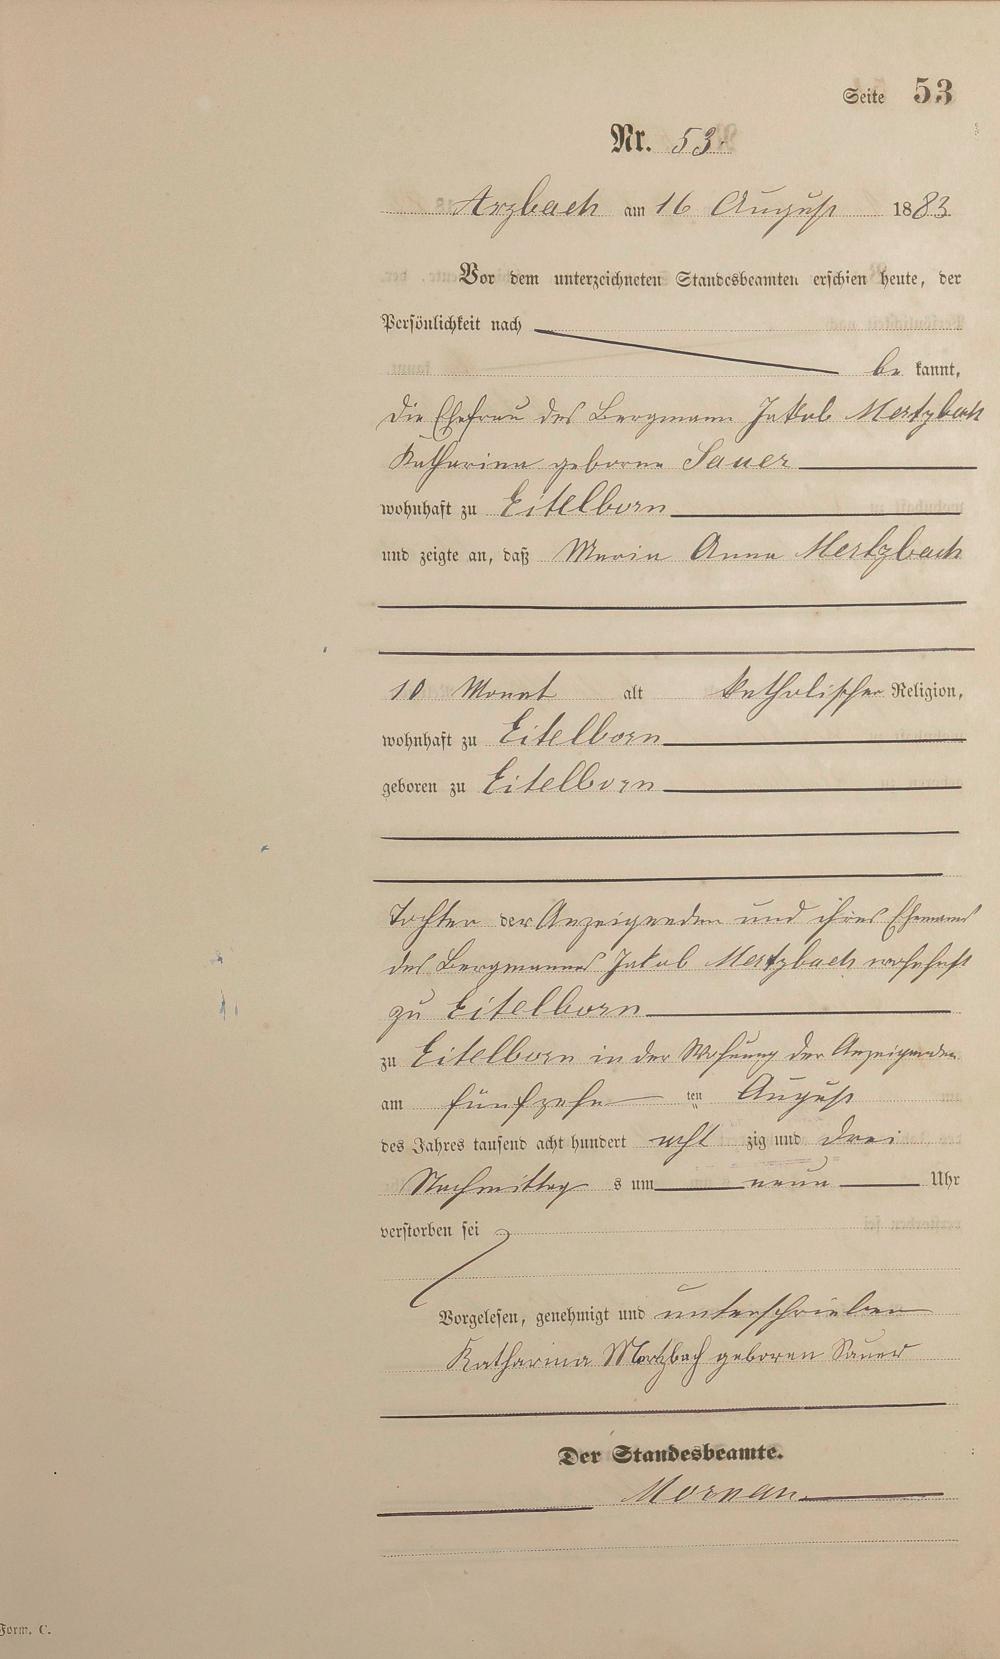 Seite 53
Nr. 53.
Arzbach am 16 August 1883
Vor dem unterzeichneten Standesbeamten erschien heute, der
Persönlichkeit nach
be kannt,
die Ehefrau des Bergmann Jakob Mertzbach
Katharina geborne Sauer
wohnhaft zu Eitelborn
und zeigte an, daß Maria Anna Mertzbach
10 Monat alt katholischer Religion,
wohnhaft zu Eitelborn
geboren zu Eitelborn
Tochter der Anzeigenden und ihres Ehemanns
des Bergmannes Jakob Mertzbach wohnhaft
zu Eitelborn
zu Eitelborn in der Wohnung der Anzeigenden
am fünfzehn ten August
des Jahres tausend acht hundert acht zig und drei
Nachmittag s um neun Uhr
verstorben sei
Vorgelesen, genehmigt und unterschrieben
Katharina Mertzbach geboren Sauer
Der Standesbeamte.
Form. C.